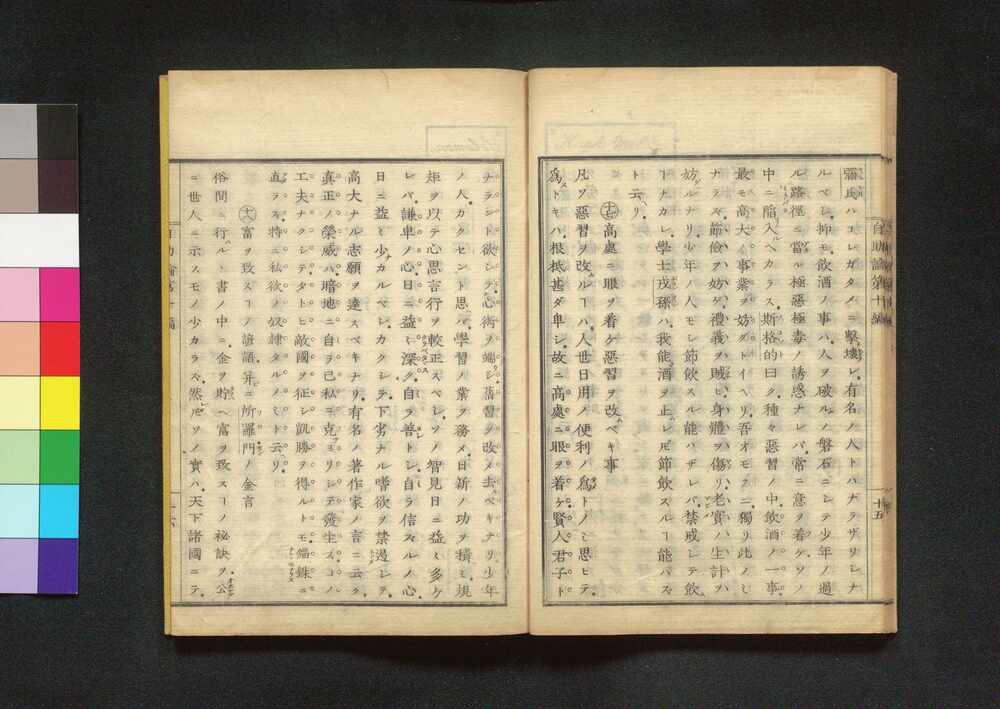 彌氏ハコレガタメニ擊壞シ。有名ノ人トハナラザリシナ
ルベシ。抑モ飲酒ノ事ハ。人ヲ破ルノ磐石ニシテ少年ノ過
ル路徑ニ當ル極惡極毒ノ誘惑ナレバ。常ニ意ヲ着ケソノ
中ニ陷入ベカラス。斯格的曰ク。種々惡習ノ中。飲酒ノ一事。
最モ高大ノ事業ヲ妨グトイヘリ。吾オモフニ獨リ此ノミ
ナラス。節儉ヲ妨ケ。禮義ヲ賊ヒ。身體ヲ傷リ。老實ノ生計ヲ
妨ルナリ。少年ノ人モシ節飲スル能ハザレバ。禁戒シテ飲
ヿナカレ。學士戎孫ハ我能酒ヲ止レ𪜈節飲スルヿ能ハズ
ト云ヘリ
高處ニ眼ヲ着ケ惡習ヲ改ベキ事
凡ソ惡習ヲ改ルヿハ。人世日用ノ便利ノ爲トノミ思ヒテ
爲トキハ。根柢甚ダ卑シ。故ニ高處ニ眼ヲ着ケ。賢人君子ト
自助論第十編
十五
ナランヿ欲シテ。心術ヲ端シ。舊習ヲ改メ去ベキナリ。少年
ノ人。カクセント思ハヾ。學習ノ業ヲ務メ。日新ノ功ヲ積ミ。規
矩ヲ以テ心思言行ヲ較正スベシ。ソノ智見日ニ益ミ多ケ
レバ。謙卑ノ心。日ニ益ミ深ク。自ラ善トシ。自ラ信スルノ心。
日ニ益ミ少カルベシ。カクシテ。下劣ナル嗜欲ヲ禁遏シテ。
高大ナル志願ヲ達スベキナリ。有名ノ著作家ノ言ニ云ク。
眞正ノ榮威ハ。暗地ニ自ラ己私ニ克ヨリシテ發生ス。コノ
工夫ナクシテ。タトヒ敵國ヲ征シ。凱勝ヲ得ルトモ。錙銖ニ
直ラス。特ニ私欲ノ奴隷タルノミト云ヘリ。
富ヲ致スヿノ諺語幷ニ所羅門ノ金言
俗間ニ行ルヽ書ノ中ニ。金ヲ貯ヘ富ヲ致スヿノ祕訣ヲ。公
ニ世人ニ示スモノ少カラズ。然𪜈ソノ實ハ。天下諸國ニテ。